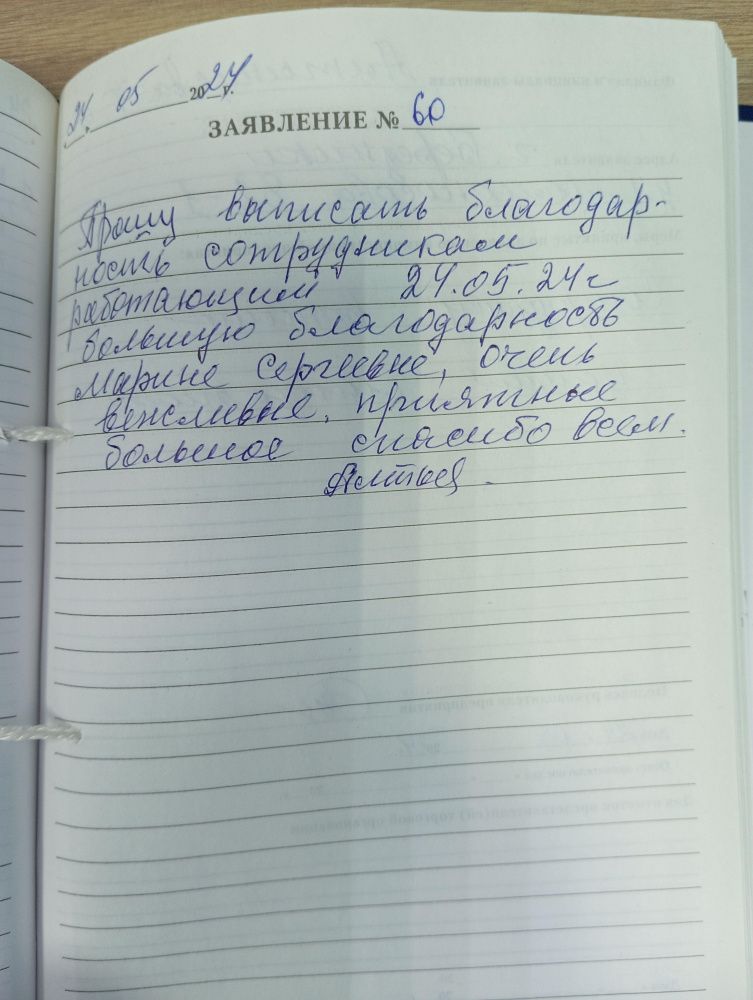 24. 05 2024 г.
ЗАЯВЛЕНИЕ № 60
Прошу выписать благодар-
ность сотрудникам
работающим 24.05.24г
большую благодарность
Марине Сергеевне, очень
вежливые, приятные
большое спасибо всем.